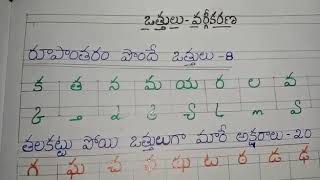 ఒత్తులు - వర్గీకరణ
రూపాంతరం పొందే ఒత్తులు - 8
క త న మ య ర ల వ
్క ్త ్న ్మ ్య ్ర ్ల ్వ
తలకట్టు పోయి ఒత్తులుగా మారే అక్షరాలు - 20
గ ఘ చ ఛ ఝ ట ఠ డ ఢ థ